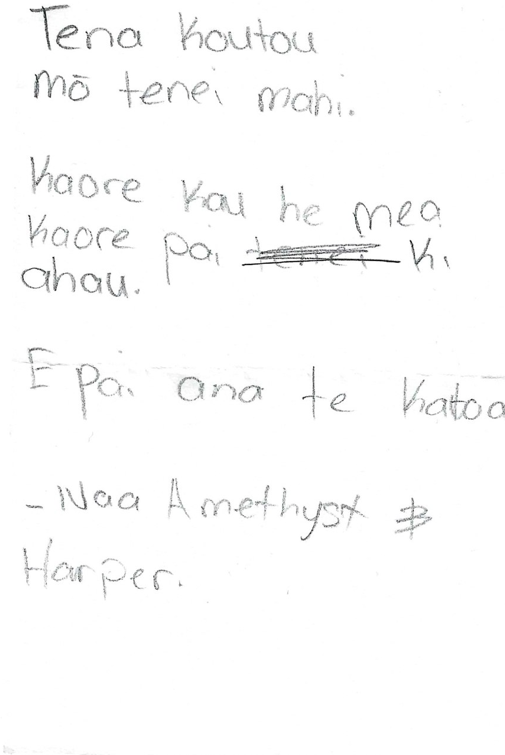 Tena koutou
mō tenei mahi.
Kaore kau he mea
kaore pai tenei ki
ahau.
E pai ana te katoa
- Naa Amethyst &
Harper.